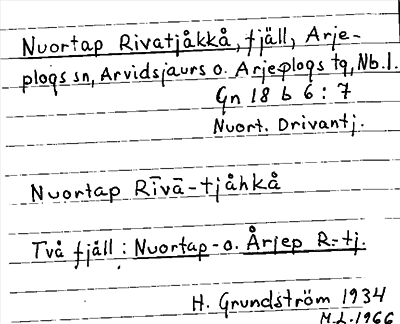 Nuortap Rivatjåkkå, fjäll, Arje-
plogs sn, Arvidsjaurs o. Arjeplogs tg, Nb.l.
Gn 18 b 6:7
Nuort. Drivantj.
Nuortap Rīvā-tjåhkå
Två fjäll: Nuortap- o. Årjep R.-tj.
H. Grundström 1934
M.L. 1966